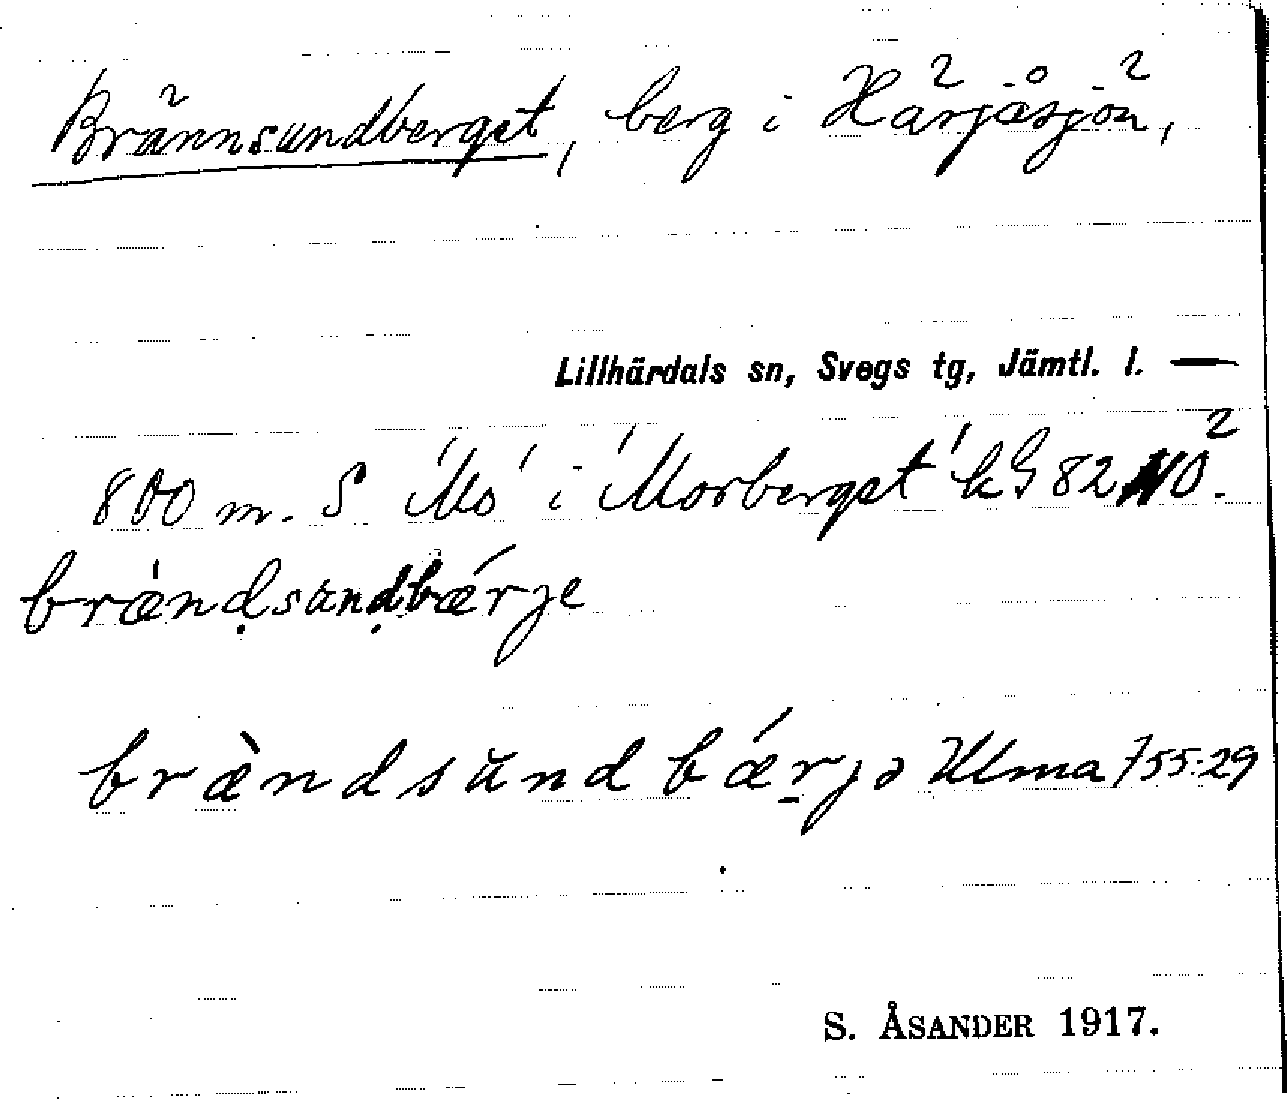 Brännsundberget, berg i Härjåsjön,
Lillhärdals sn, Svegs tg, Jämtl. l. —
800 m. S 'Mo' i 'Morberget' kG 82 NO.
brændsundbærje
brændsund bærjə Ulma 755:29
S. ÅSANDER 1917.